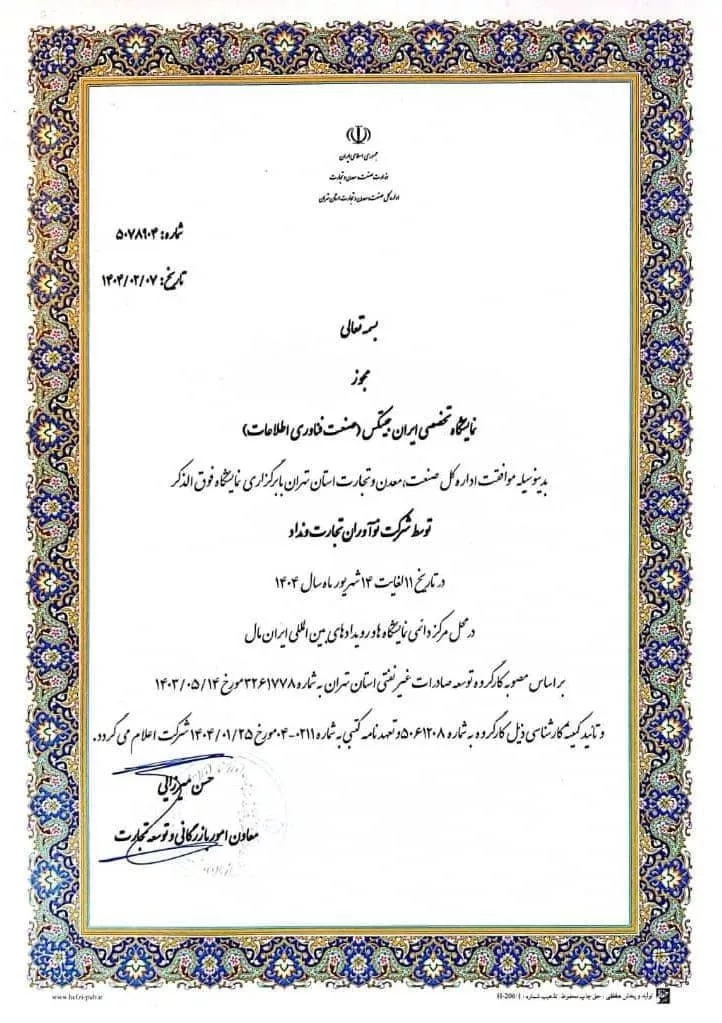 جمهوری اسلامی ایران
وزارت صنعت، معدن و تجارت
اداره کل صنعت، معدن و تجارت استان تهران
شماره: ۵۰۷۸۹۰۴
تاریخ: ۱۴۰۴/۰۲/۰۷
بسمه تعالی
مجوز
نمایشگاه تخصصی ایران جیتکس (صنعت فناوری اطلاعات)
بدینوسیله موافقت اداره کل صنعت، معدن و تجارت استان تهران با برگزاری نمایشگاه فوق الذکر
توسط شرکت نوآوران تجارت ونداد
در تاریخ ۱۱ لغایت ۱۴ شهریور ماه سال ۱۴۰۴
در محل مرکز دائمی نمایشگاه ها و رویدادهای بین المللی ایران مال
بر اساس مصوبه کارگروه توسعه صادرات غیر نفتی استان تهران به شماره ۳۲۶۱۷۷۸ مورخ ۱۴۰۳/۰۵/۱۴
و تائید کمیته کارشناسی ذیل کارگروه به شماره ۵۰۶۱۲۰۸ و تعهد نامه کتبی به شماره ۰۴-۰۲۱۱ مورخ ۱۴۰۴/۰۱/۲۵ شرکت اعلام می گردد.
حسن میرزائی
معاون امور بازرگانی و توسعه تجارت
تولید و پخش حفظی : حق چاپ محفوظ. تذهیب شماره : H-206/1
www.hefzi-pub.ir